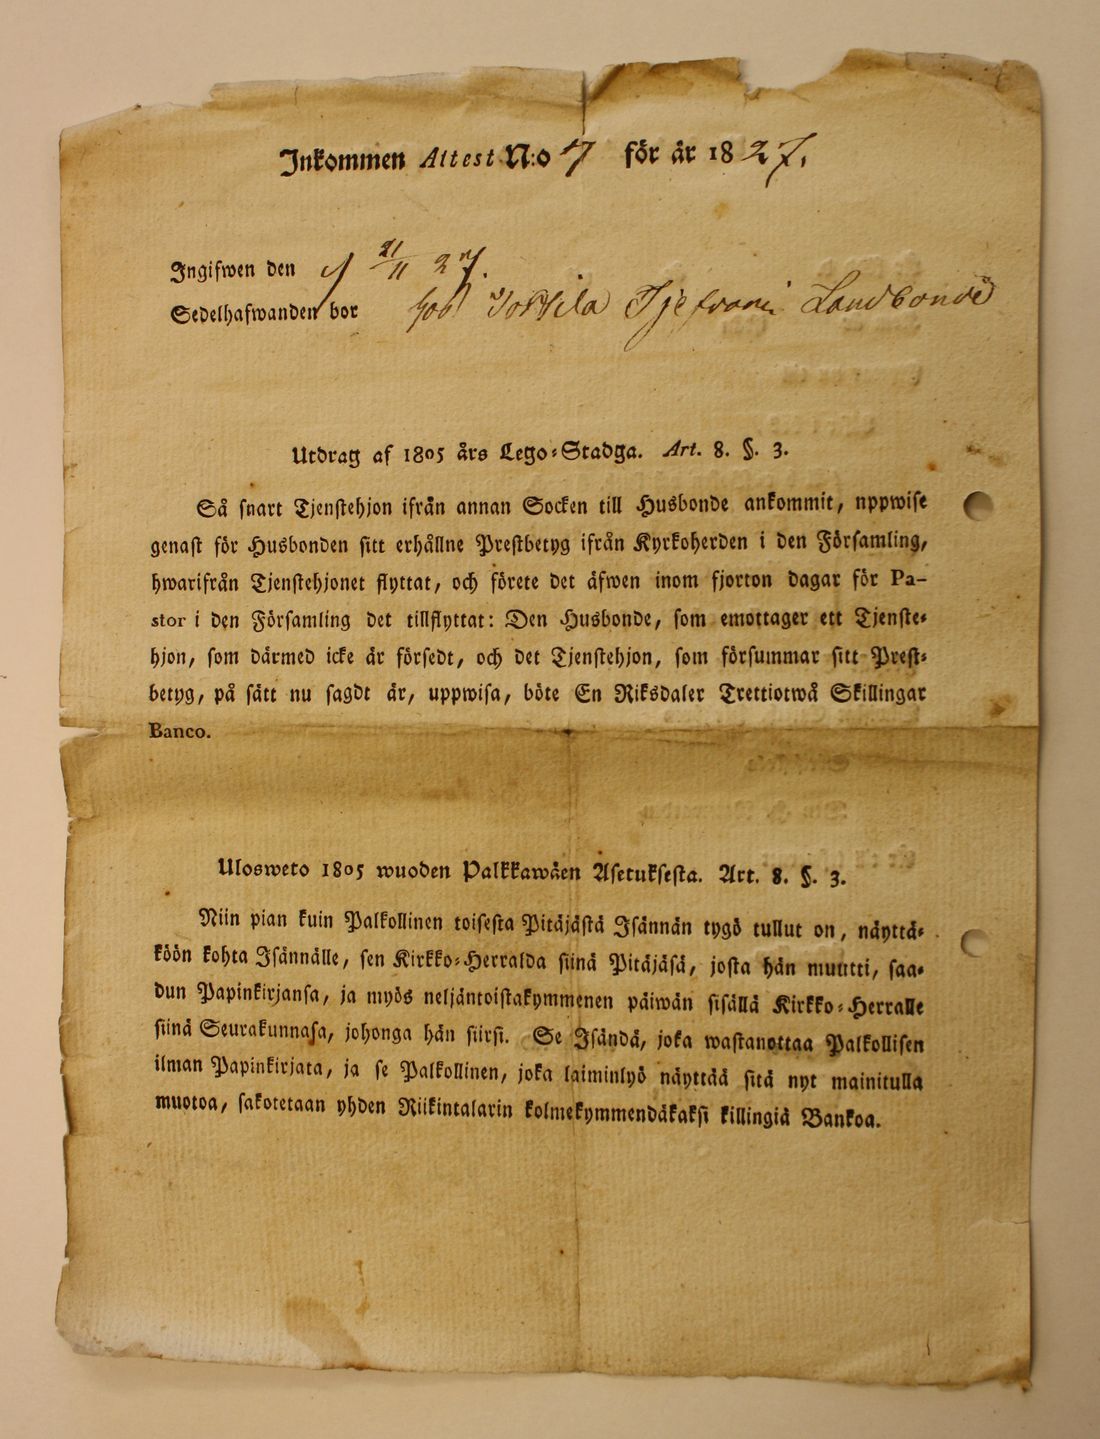 Inkommen Attest N:o 7 för år 1827.
Ingifwen den 21/11 27.
Sedelhafwanden bor hos Landbonde
Utdrag af 1805 års Lego-Stadga. Art. 8. §. 3.
Så snart Tjenstehjon ifrån annan Socken till Husbonde ankommit, nppwise
genast för Husbonden sitt erhållne Prestbetyg ifrån Kyrkoherden i den Församling,
hwarifrån Tjenstehjonet flyttat, och förete det äfwen inom fjorton dagar för Pa-
stor i den Församling det tillflyttat: Den Husbonde, som emottager ett Tjenste-
hjon, som därmed icke är försedt, och det Tjenstehjon, som försummar sitt Prest-
betyg, på sätt nu sagdt är, uppwisa, böte En Riksdaler Trettiotwå Skillingar
Banco.
Ulosweto 1805 wuoden Palkkawäen Asetuksesta. Art. 8. §. 3.
Niin pian kuin Palkollinen toisesta Pitäjästä Isännän tygö tullut on, näyttä-
köön kohta Isännälle, sen Kirkko-Herralda siinä Pitäjäsä, josta hän muutti, saa-
dun Papinkirjansa, ja myös neljäntoistakymmenen päiwän sisällä Kirkko-Herralle
siinä Seurakunnasa, johonga hän siirsi. Se Isändä, joka wastanottaa Palkollisen
ilman Papinkirjata, ja se Palkollinen, joka laiminlyö näyttää sitä nyt mainitulla
muotoa, sakotetaan yhden Riikintalarin kolmekymmendäkaksi killingiä Bankoa.